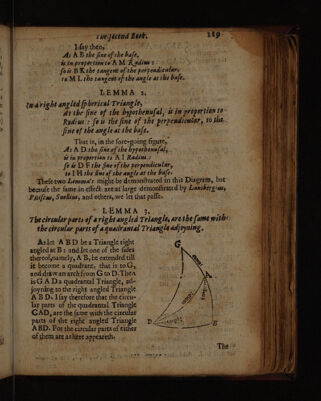 The second Book. 119
I say then,
As A B the sine of the base,
is in proportion to A M Radius :
so is B K the tangent of the perpendicular,
to M L the tangent of the angle at the base.
LEMMA 2.
In a right angled spherical Triangle,
As the sine of the hypothenusal, is in proportion to
Radius : so is the sine of the perpendicular, to the
sine of the angle at the base.
That is, in the fore-going figure,
As A D the sine of the hypothenusal,
is in proportion to A I Radius :
so is D F the sine of the perpendicular,
to I H the sine of the angle at the base.
These two Lemma's might be demonstrated in this Diagram, but
because the same in effect are at large demonstrated by Lansbergius,
Pitiscus, Snellius, and others, we let that passe.
LEMMA 3.
The circular parts of a right angled Triangle, are the same with
the circular parts of a quadrantal Triangle adjoyning.
As let A B D be a Triangle right
angled at B : and let one of the sides
thereof, namely, A B, be extended till
it become a quadrant, that is to G,
and draw an arch from G to D. Then
is G A D a quadrantal Triangle, ad-
joyning to the right angled Triangle
A B D. I say therefore that the circu-
lar parts of the quadrantal Triangle
GAD, are the same with the circular
parts of the right angled Triangle
ABD. For the circular parts of either
of them are as here appeareth.
G
D
The